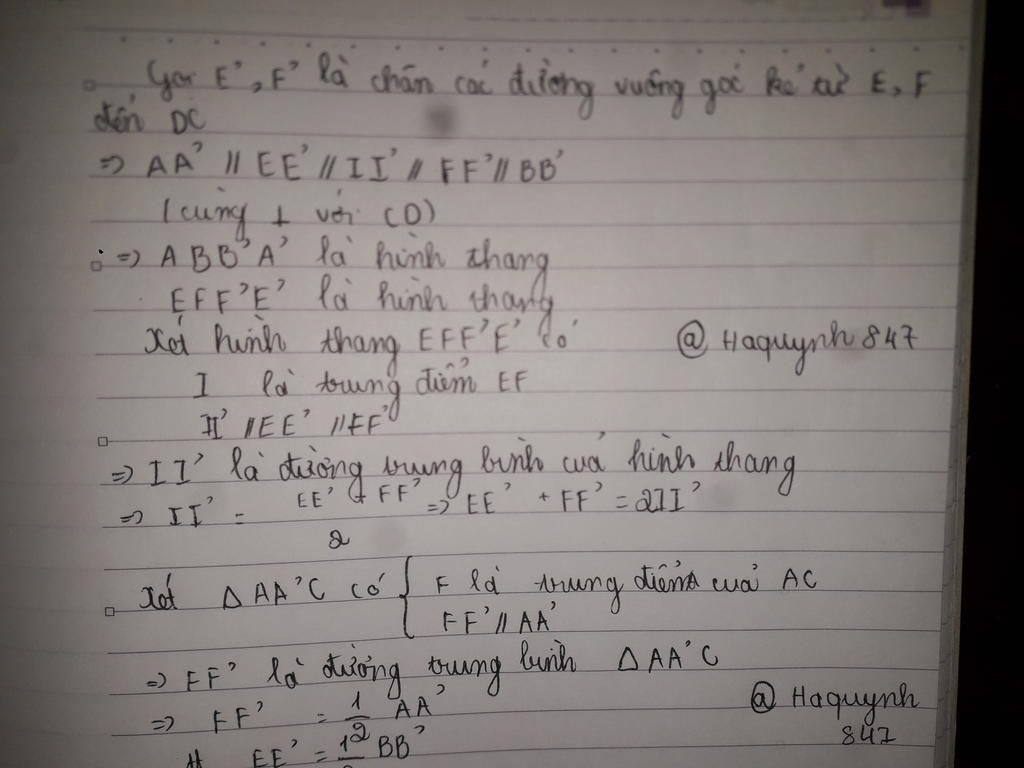 Gọi E', F' là chân các đường vuông góc kẻ từ E, F
đến DC
=> AA' // EE' // II' // FF' // BB'
(cùng ⊥ với CD)
=> ABB'A' là hình thang
EFF'E' là hình thang
Xét hình thang EFF'E' có
@ Haquynh847
I là trung điểm EF
II' // EE' // FF'
=> II' là đường trung bình của hình thang
=> II' = (EE' + FF')/2 => EE' + FF' = 2II'
Xét Δ AA'C có { F là trung điểm của AC
FF' // AA'
=> FF' là đường trung bình Δ AA'C
=> FF' = 1/2 AA'
@ Haquynh
847
EE' = 1/2 BB'